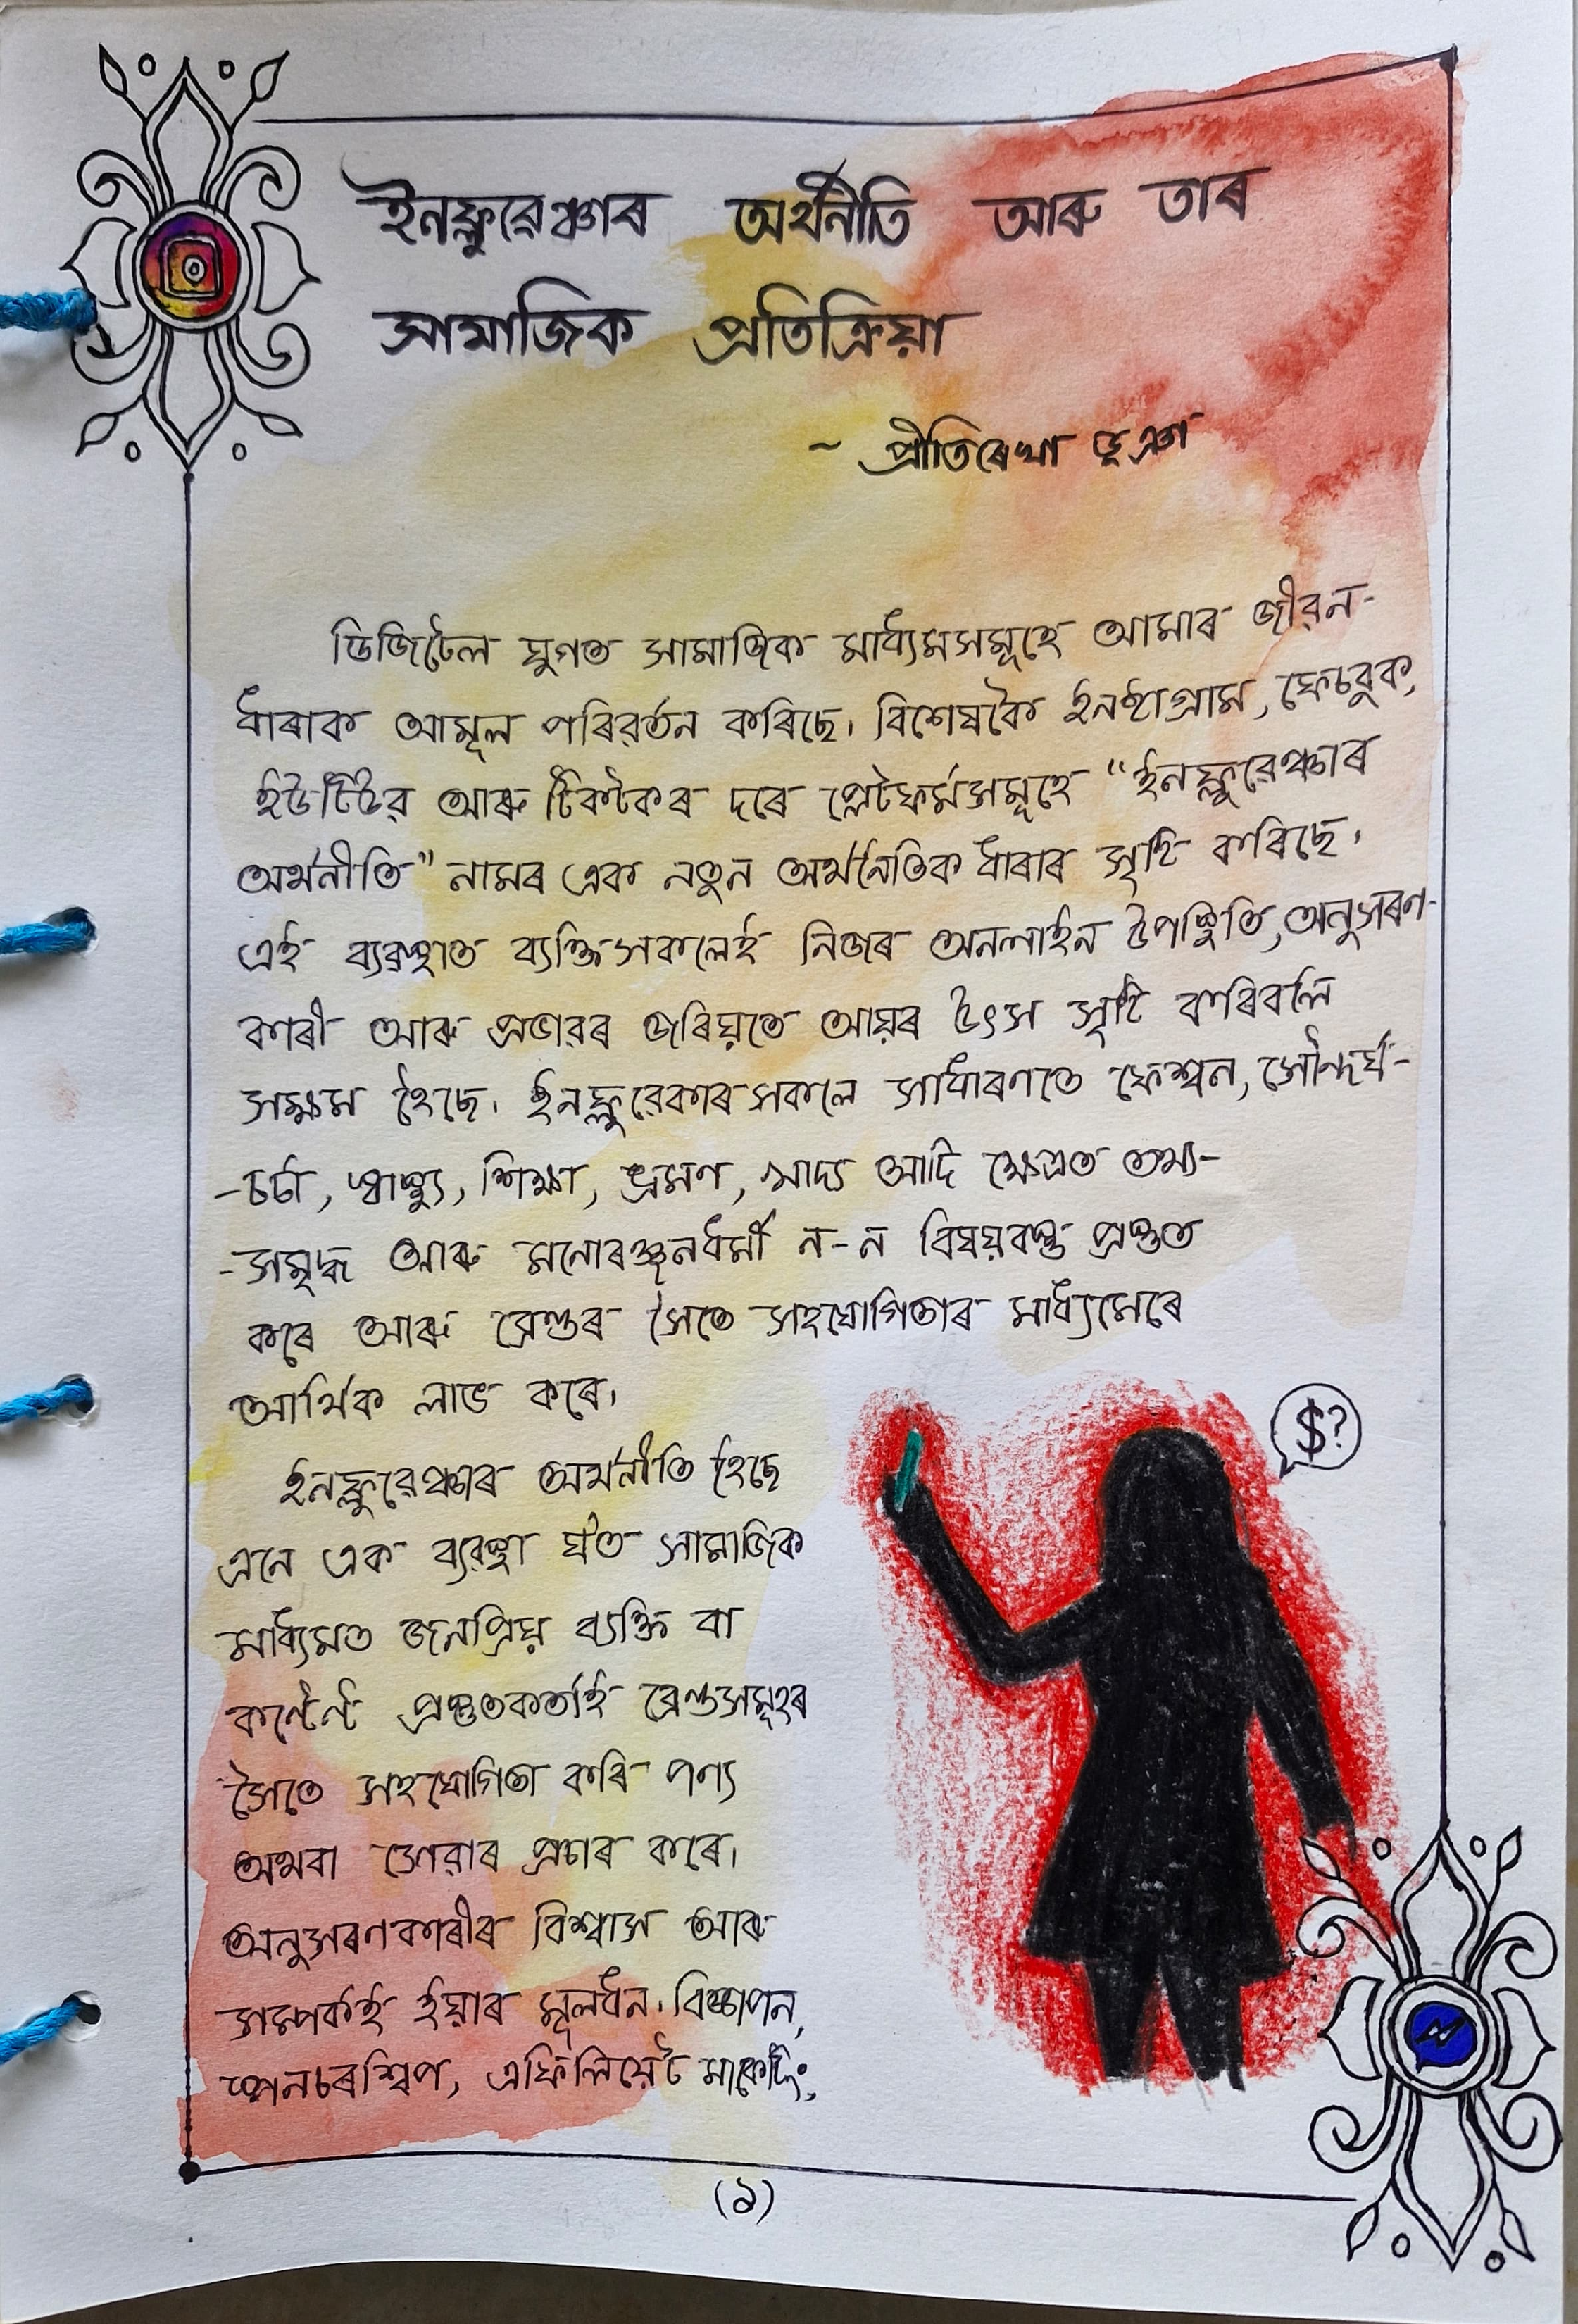 ইনফ্লুৱেঞ্চাৰ অৰ্থনীতি আৰু তাৰ
সামাজিক প্ৰতিক্ৰিয়া
~ প্ৰীতিৰেখা ভূঞা
ডিজিটেল যুগত সামাজিক মাধ্যমসমূহে আমাৰ জীৱন-
ধাৰাক আমূল পৰিৱৰ্তন কৰিছে। বিশেষকৈ ইনষ্টাগ্ৰাম, ফেচবুক,
ইউটিউৱ আৰু টিকটকৰ দৰে প্লেটফৰ্মসমূহে "ইনফ্লুৱেঞ্চাৰ
অৰ্থনীতি" নামৰ এক নতুন অৰ্থনৈতিক ধাৰাৰ সৃষ্টি কৰিছে।
এই ব্যৱস্থাত ব্যক্তিসকলেই নিজৰ অনলাইন উপস্থিতি, অনুসৰণ-
কাৰী আৰু প্ৰভাৱৰ জৰিয়তে আয়ৰ উৎস সৃষ্টি কৰিবলৈ
সক্ষম হৈছে। ইনফ্লুৱেন্সাৰসকলে সাধাৰণতে ফেশ্বন, সৌন্দৰ্য-
-চৰ্চা, স্বাস্থ্য, শিক্ষা, ভ্ৰমণ, খাদ্য আদি ক্ষেত্ৰত তথ্য-
-সমৃদ্ধ আৰু মনোৰঞ্জনধৰ্মী ন-ন বিষয়বস্তু প্ৰস্তুত
কৰে আৰু ব্ৰেণ্ডৰ সৈতে সহযোগিতাৰ মাধ্যমেৰে
আৰ্থিক লাভ কৰে।
$?
ইনফ্লুৱেঞ্চাৰ অৰ্থনীতি হৈছে
এনে এক ব্যৱস্থা য'ত সামাজিক
মাধ্যমত জনপ্ৰিয় ব্যক্তি বা
কণ্টেণ্ট প্ৰস্তুতকৰ্তাই ব্ৰেণ্ডসমূহৰ
সৈতে সহযোগিতা কৰি পণ্য
অথবা সেৱাৰ প্ৰচাৰ কৰে।
অনুসৰণকাৰীৰ বিশ্বাস আৰু
সম্পৰ্কই ইয়াৰ মূলধন। বিজ্ঞাপন,
স্পনচৰশ্বিপ, এফিলিয়েট মাৰ্কেটিং,
(১)